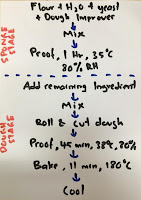 Flour + H2O + yeast
+ Dough Improver
Mix
Proof, 1 Hr, 35°C
80% RH
SPONGE STAGE
Add remaining Ingredients
Mix
Roll & Cut dough
Proof, 45 min, 38°C, 80%
Bake, 11 min, 180°C
Cool
DOUGH STAGE